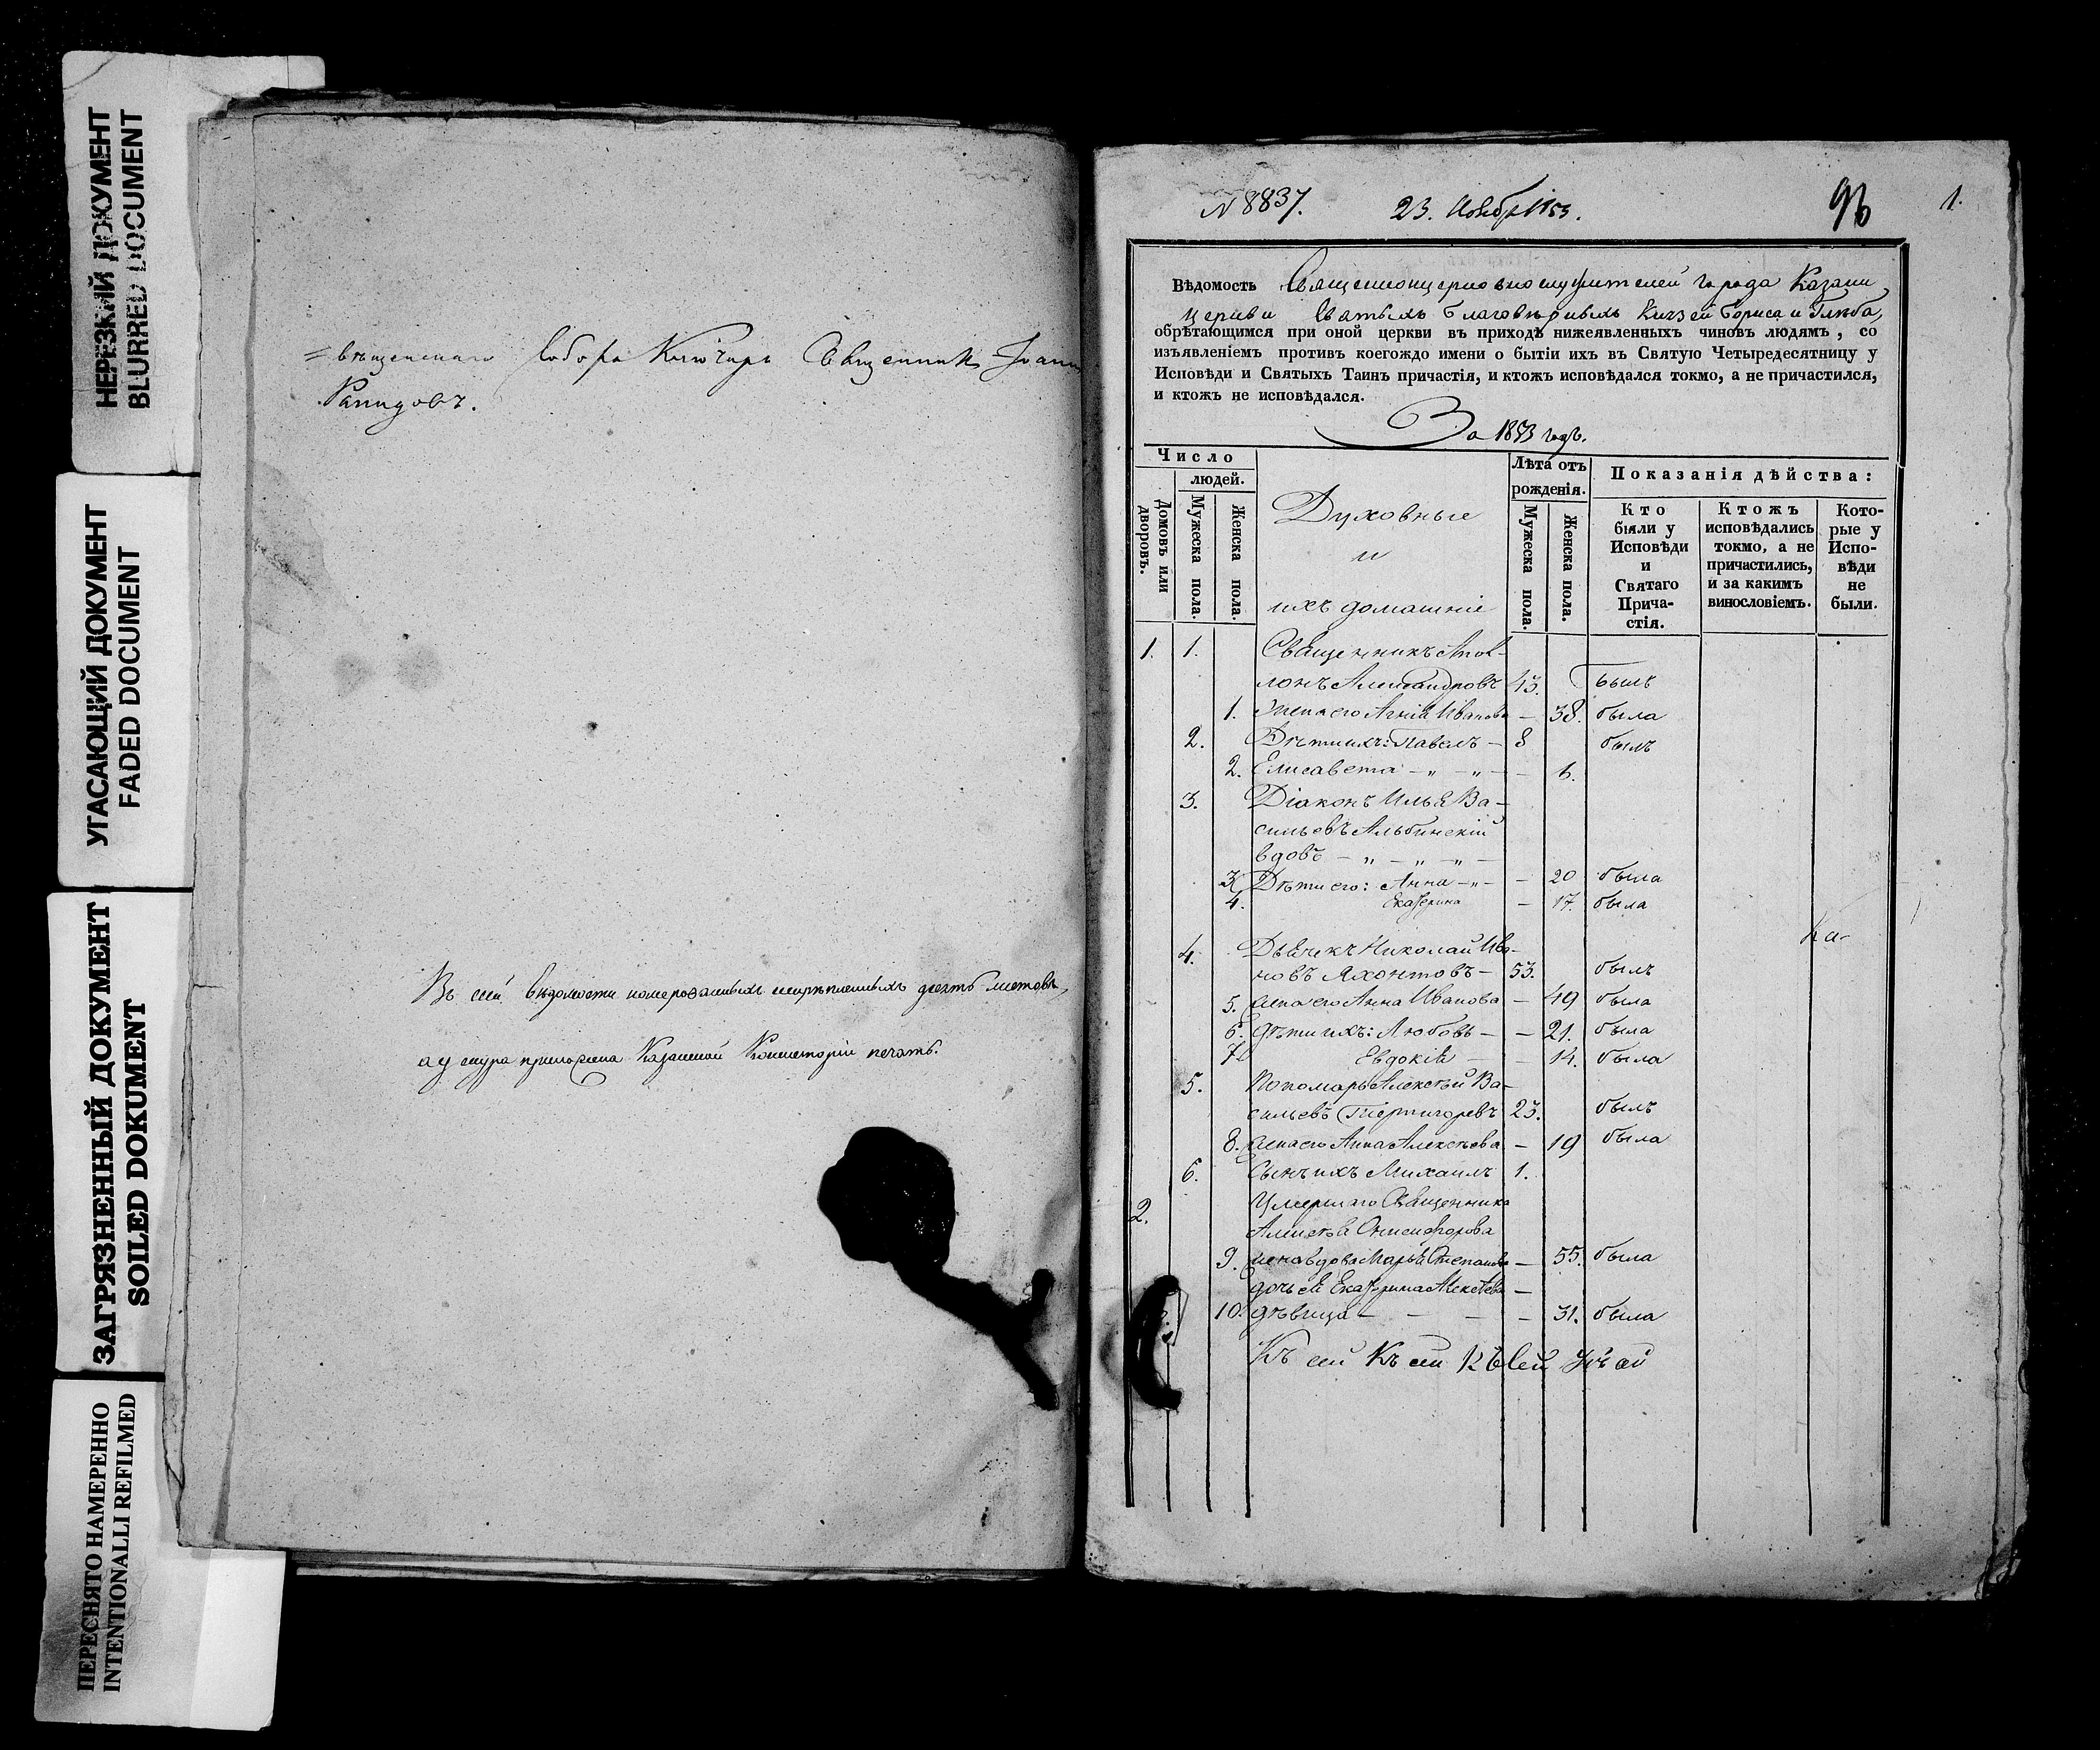 НЕРЕЗКИЙ ДОКУМЕНТ
BLURRED DOCUMENT
УГАСАЮЩИЙ ДОКУМЕНТ
FADED DOCUMENT
ЗАГРЯЗНЕННЫЙ ДОКУМЕНТ
SOILED DOKUMENT
ПЕРЕСНЯТО НАМЕРЕННО
INTENTIONALLI REFILMED
=вѣщенскаго Собора Ключарь Священникъ Іоаннъ
Рапидовъ.
Въ сей вѣдомости номерованныхъ скрѣпленныхъ десять листовъ,
а у снура приложена Казанской Консисторіи печать.
N 8837. 23. Ноябр 1853.
96 1.
Вѣдомость Священноцерковнослужителей города Казани
церкви Святыхъ Благовѣрныхъ Князей Бориса и Глѣба
обрѣтающимся при оной церкви въ приходѣ нижеявленныхъ чиновъ людямъ, со
изъявленіемъ противъ коегождо имени о бытіи ихъ въ Святую Четыредесятницу у
Исповѣди и Святыхъ Таинъ причастія, и ктожъ исповѣдался токмо, а не причастился,
и ктожъ не исповѣдался.
За 1853 годъ.
Число
людей.
Домовъ или дворовъ.
Мужеска пола.
Женска пола.
Духовные
и
ихъ домашніе
Лѣта отъ
рожденія.
Мужеска пола.
Женска пола.
Показанія дѣйства:
Кто
были у
Исповѣди
и
Святаго
Прича-
стія.
Ктожъ
исповѣдались
токмо, а не
причастились,
и за какимъ
винословіемъ.
Кото-
рые у
Испо-
вѣди
не
были.
1. 1. Священникъ Апол-
лонъ Александровъ 43. Былъ
1. Жена его Агнія Иванова – 38. была
2. Дѣти ихъ: Павелъ – 8 былъ
2. Елисавета – „ – „ – – 6.
3. Діаконъ Илья Ва-
сильевъ Альбинскій
вдовъ – „ – „ – „ –
3. Дѣти его: Анна – „ – – 20 была
4. Екатерина – 17. была
4. Дьячекъ Николай Ива-
новъ Яхонтовъ – 53. былъ
5. жена его Анна Иванова – 49 была
6. дѣти ихъ: Любовь – – 21. была
7. Евдокія – – 14. была
5. Пономарь Алексѣй Ва-
сильевъ 23. былъ
8. жена его Анна Алексѣева – 19 была
6. Сынъ ихъ Михаилъ 1.
2. Умершаго Священника
Алексѣя Онисифорова
9. жена вдова Марья Степанова – 55. была
дочь ея Екатерина Алексѣева –
10. дѣвица – – – – 31. была
Ка-
Къ сей Къ сей Къ Сей